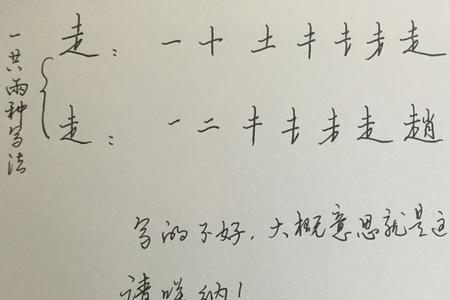 一共两种写法
走： 一 十 土 走
走： 一 二 走 趙
写的不好，大概意思就是这
请笑纳！